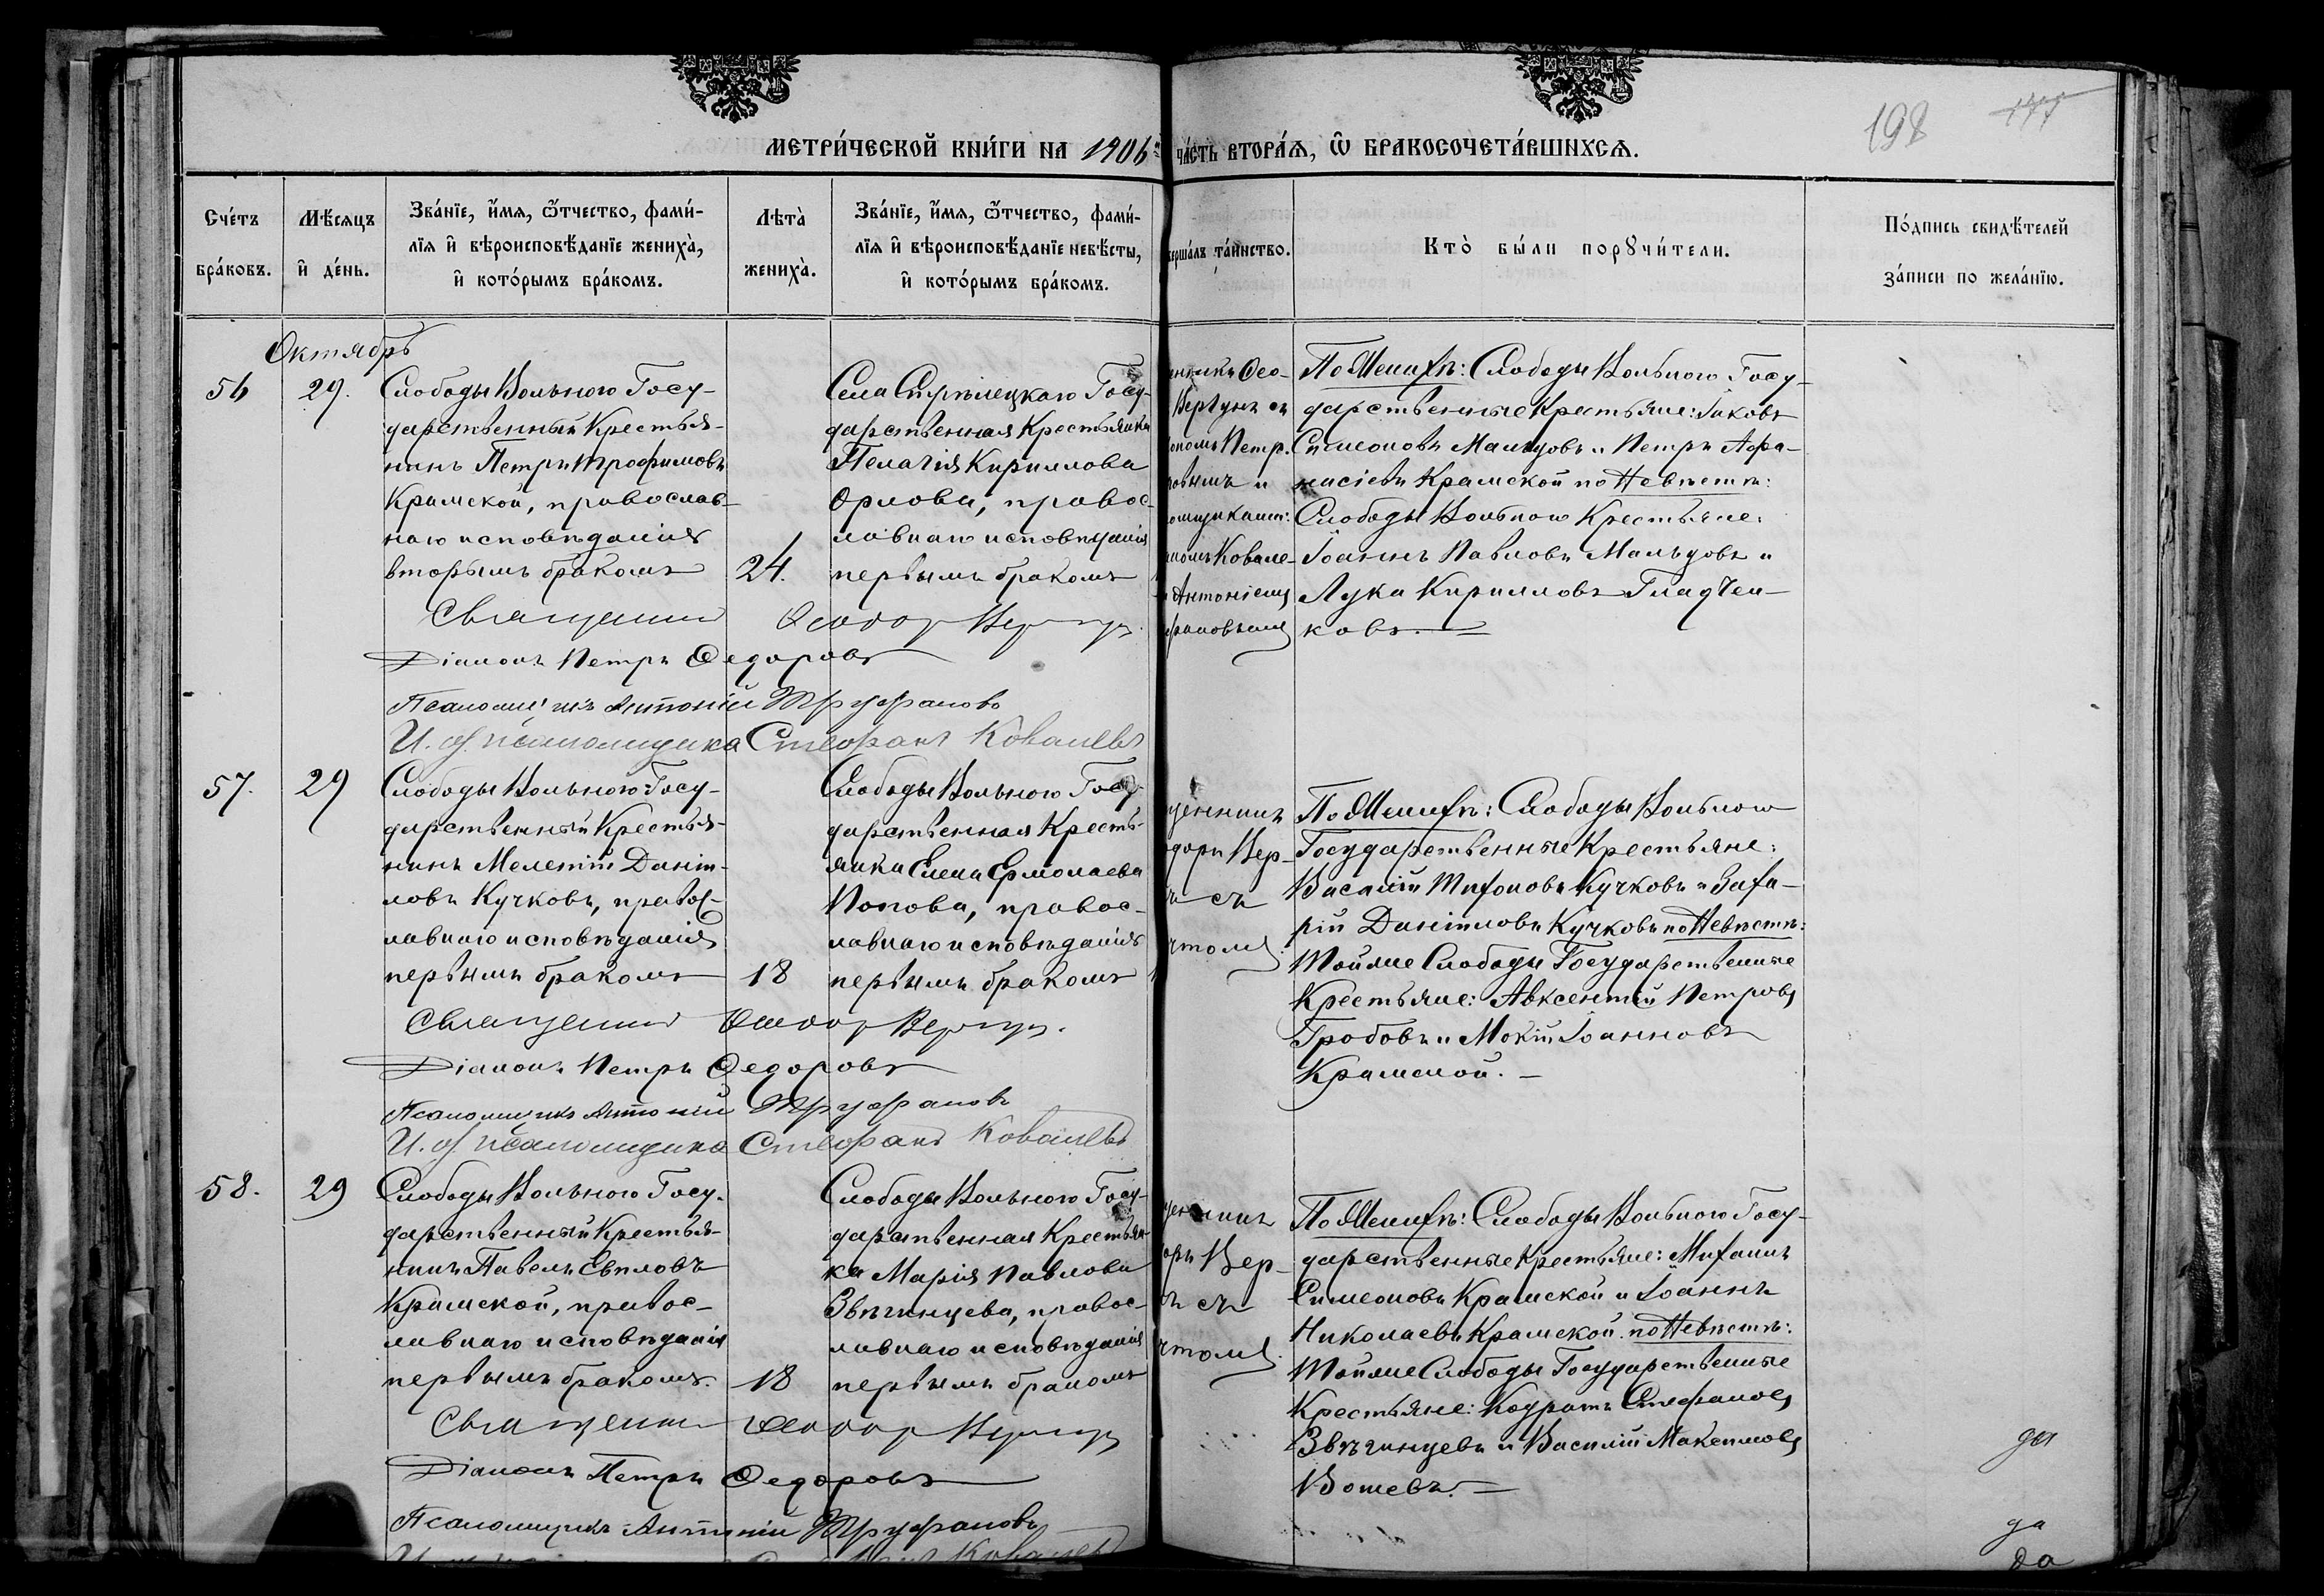 МЕТРИ́ЧЕСКОЙ КНИ́ГИ НА 1906
ЧА́СТЬ ВТОРА́Я, Ѡ БРАКОСОЧЕТА́ВШИХСЯ.
198 177
Сче́тъ бра́ковъ.
Мѣ́сяцъ и҆ де́нь.
Зва́нїе, и҆́мя, ѻ҆́тчество, фами́-
лїя и҆ вѣроисповѣ́данїе жениха̀,
и҆ кото́рымъ бра́комъ.
Лѣта̀ жениха̀.
Зва́нїе, и҆́мя, ѻ҆́тчество, фами́-
лїя и҆ вѣроисповѣ́данїе невѣ́сты,
и҆ кото́рымъ бра́комъ.
вершалъ та́инство.
Кто̀ бы́ли порꙋчи́тели.
По́дпись свидѣ́телей
за́писи по жела́нїю.
Октябрь
56 29.
Слободы Вольного Госу-
дарственный Крестья-
нинъ Петръ Трофимовъ
Крамской, православ-
наго исповѣданія
вторымъ бракомъ
24.
Села Стрѣлецкаго Госу-
дарственная Крестьянка
Пелагія Кириллова
Орлова, правос-
лавнаго исповѣданія
первымъ бракомъ
Ѳео-
Вергунъ съ
Петр.
и
Ковале-
Антоніемъ
По Женихѣ: Слободы Вольного Госу-
дарственные Крестьяне: Іаковъ
Симеоновъ Мальцовъ и Петръ Афа-
насіевъ Крамской по Невѣстѣ:
Слободы Вольного Крестьяне:
Іоаннъ Павловъ Мальцовъ и
Лука Кирилловъ Гладчен-
ковъ.
Священникъ Ѳеодоръ Вергунъ
Діаконъ Петръ Ѳедоровъ
Псаломщикъ Антоній Труфановъ
И. об. псаломщика Стефанъ Ковалевъ
57. 29
Слободы Вольного Госу-
дарственный Крестья-
нинъ Мелетій Даніи-
ловъ Кучковъ, правос-
лавнаго исповѣданія
первымъ бракомъ
18
Слободы Вольного Госу-
дарственная Кресть-
янка Елена Ермолаева
Попова, правос-
лавнаго исповѣданія
первымъ бракомъ
щенникъ
одоръ Вер-
ъ съ
чтомъ
По Женихѣ: Слободы Вольного
Государственные Крестьяне:
Василій Тихоновъ Кучковъ и Заха-
рій Даніиловъ Кучковъ по Невѣстѣ:
Тойже Слободы Государственные
Крестьяне: Авксентій Петровъ
Гробовъ и Мокій Іоанновъ
Крамской.
Священникъ Ѳеодоръ Вергунъ.
Діаконъ Петръ Ѳедоровъ
Псаломщикъ Антоній Труфановъ
И. об. псаломщика Стефанъ Ковалевъ
58. 29
Слободы Вольного Госу-
дарственный Крестья-
нинъ Павелъ Евиловъ
Крамской, правос-
лавнаго исповѣданія
первымъ бракомъ.
18
Слободы Вольного Госу-
дарственная Крестьян-
ка Марія Павлова
Звѣгинцева, правос-
лавнаго исповѣданія
первымъ бракомъ
щенникъ
оръ Вер-
ъ съ
чтомъ
По Женихѣ: Слободы Вольного Госу-
дарственные Крестьяне: Михаилъ
Симеоновъ Крамской и Іоаннъ
Николаевъ Крамской. по Невѣстѣ:
Тойже Слободы Государственные
Крестьяне: Кодратъ Стефановъ
Звѣгинцевъ и Василій Максимовъ
Вошевъ.
Священникъ Ѳеодоръ Вергунъ
Діаконъ Петръ Ѳедоровъ
Псаломщикъ Антоній Труфановъ
Ковалевъ
да
да
да